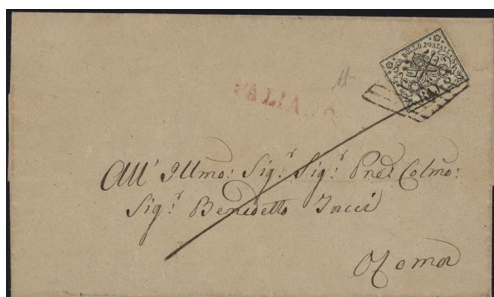 FRANCO BOLLO POSTALE
BAJ
PALIANO
All' Illmo: Sig.r Sig.r Pne: Colmo:
Sig.r Benedetto Tacci
Roma